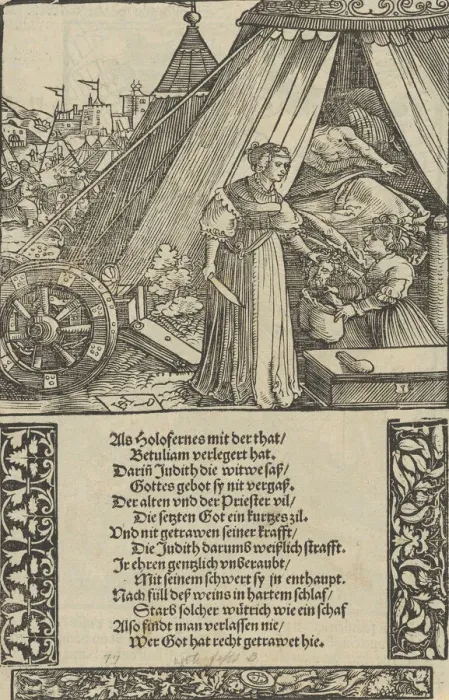 Als Holofernes mit der that/
Betuliam verlegert hat.
Dariñ Judith die witwe saß/
Gottes gebot sy nit vergaß.
Der alten vnd der Priester vil/
Die setzten Got ein kurtzes zil.
Vnd nit getrawen seiner krafft/
Die Judith darumb weißlich strafft.
Ir ehren gentzlich vnberaubt/
Mit seinem schwert sy jn enthaupt.
Nach füll deß weins in hartem schlaf/
Starb solcher wütrich wie ein schaf
Also findt man verlassen nie/
Wer Got hat recht getrawet hie.